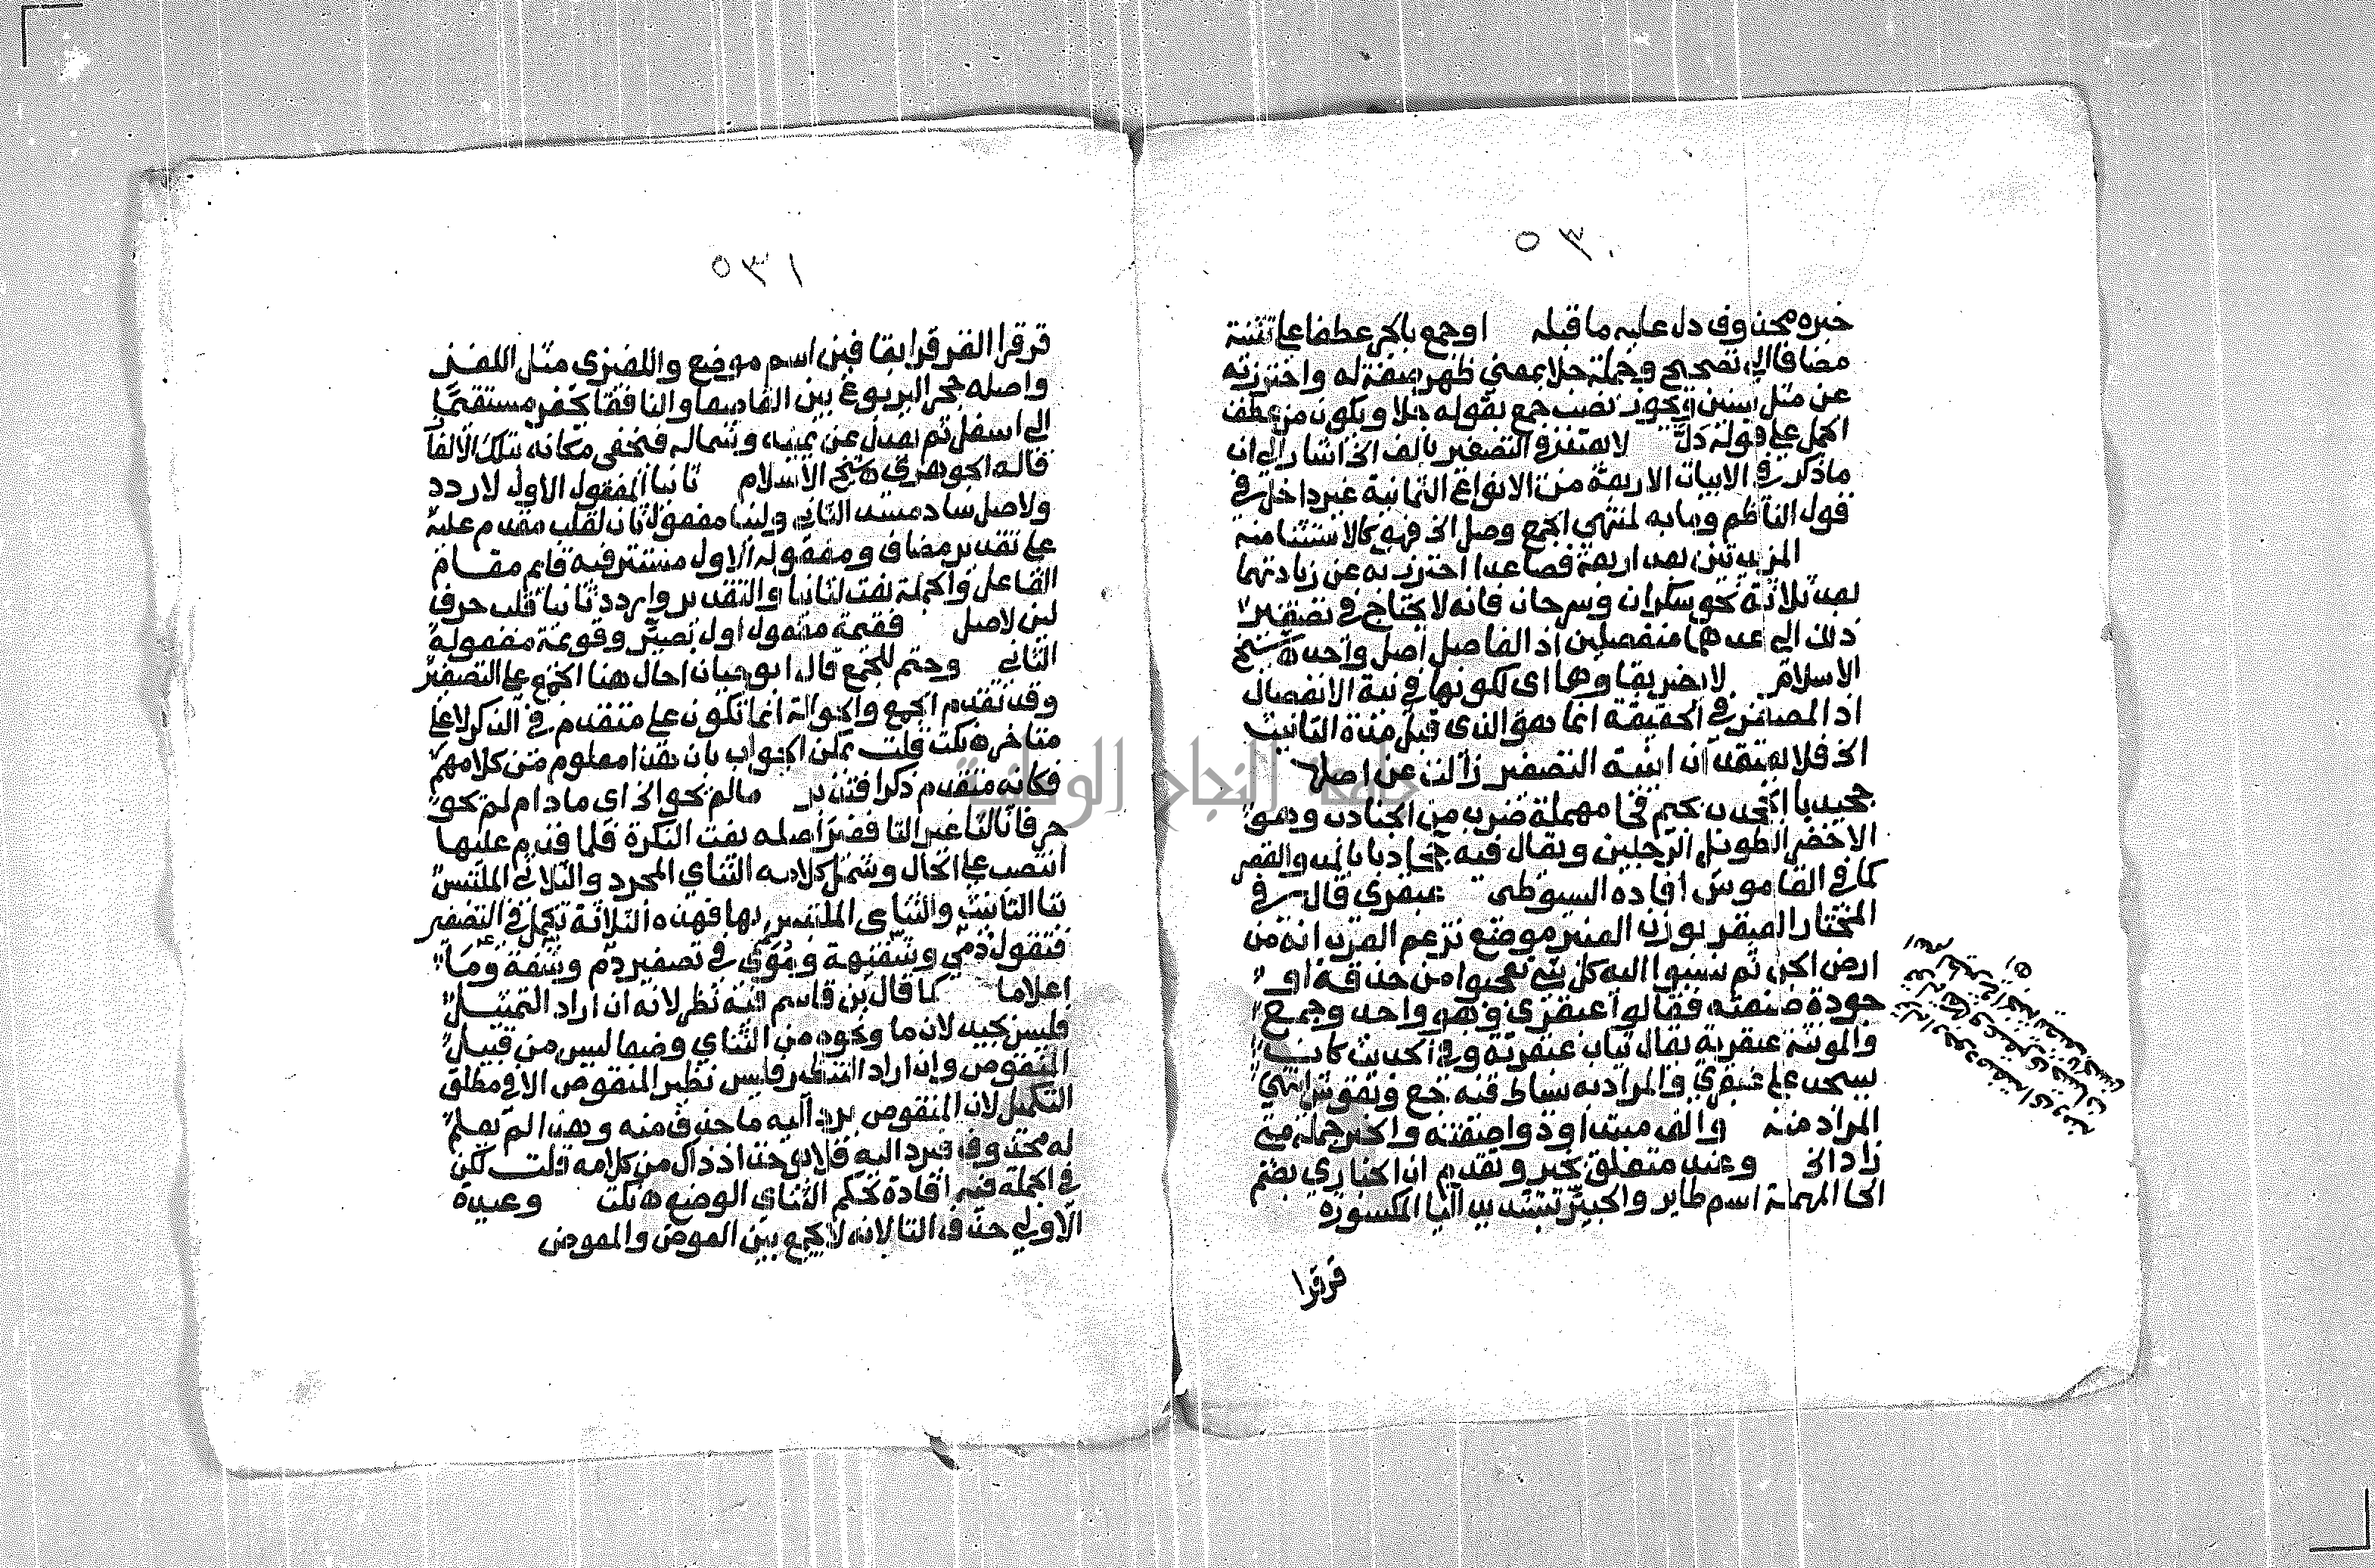 ٥٣٠
خبره محذوف دل عليه ما قبله او جمع بالجر عطفا على تثنية
مضافا الى تصحيح وجملة جلا بمعنى ظهر صفة له واحترز به
عن مثل سنين ويجوز نصب جمع بقوله جلا ويكون من عطف
الجمل على قوله دل لا يعتد في التصغير بالف الخ اشار الى ان
ما ذكر في الابيات الاربعة من الانواع الثمانية غير داخل في
قول الناظم وما به لمنتهى الجمع وصل الخ فهي كالاستثنا منه
المزيدتين بعد اربعة فصاعدا احترز به عن زيادتهما
بعد ثلاثة نحو سكران وسرحان فانه لا يحتاج في تصغير
ذلك الى عدهما منفصلين اذ الفاصل اصل واحد ه شيخ
الاسلام لا يضر بقاوهما اى لكونها في نية الانفصال
اذ المصغر في الحقيقة انما هو الذى قبل مدة التانيث
الخ فلا يعتقد ان ابنية التصغير زالت عن اصلها
جحيدبا الجحدب بجيم فحا مهملة ضرب من الجنادب وهو
الاخضر الطويل الرجلين ويقال فيه جحادبا بالمد والقصر
كما في القاموس افاده السيوطى عبقرى قال في
المختار العبقر بوزن العنبر موضع تزعم العرب انه من
ارض الجن ثم نسبوا اليه كل شي تعجبوا من حذقه او
جودة صنعته فقالوا عبقرى وهو واحد وجمع
والمونث عبقرية يقال ثياب عبقرية وفي الحديث كان
يسجد على عبقري والمراد به بساط فيه نقوش انتهى
المراد منه والف مبتدا وذو صفته والخبر جملة متى
زاد الخ وعند متعلق بخير وتقدم ان الحبارى بضم
الحا المهملة اسم طاير والحبير تشديد اليا المكسورة
قرقرا
٥٣١
قرقرا القرقرا بقافين اسم موضع واللغيزى مثل اللغز
واصله جحر اليربوع بين القاصعا والنافقا يحفر مستقيما
الى اسفل ثم يعدل عن يمينه وشماله فتخفى مكانه بتلك الالغاز
قاله الجوهرى ه شيخ الاسلام ثانيا المفعول الاول لاردد
ولاصل ساد مسد الثاني ولينا مفعول ثان لقلب مقدم عليه
على تقدير مضاف ومفعوله الاول مستتر فيه قايم مقام
الفاعل والجملة نعت لثانيا والتقدير واردد ثانيا قلب حرف
لين لاصل فقيمة مفعول اول تصير وقويمة مفعوله
الثاني وحتم للجمع قال ابو حيان احال هنا الجمع على التصغير
وقد تقدم الجمع والحوالة انما تكون على متقدم في الذكر لا على
متاخر ه نكت قلت يمكن الجواب بان هذا معلوم من كلامهم
فكانه متقدم ذكرا فتدبر مالم نحو الخ اى مادام لم نحو
حرفا ثالثا غير التا فغير اصله نعت النكرة فلما قدم عليها
انتصب على الحال وشمل كلامه الثناى المجرد والثلاثي الملتبس
بتا التانيث والثناى الملتبس بها فهذه الثلاثة تكمل في التصغير
فتقول دمي وشفيهة ومُوَيّ في تصغير دم وشفة وما
اعلاما كما قال بن قاسم فيه نظر لانه ان اراد التمثيل
فليس بجيد لان ما ونحوه من الثناي وضعا ليس من قبيل
المنقوص وان اراد التنظير فليس نظير المنقوص الا في مطلق
التكميل لان المنقوص يرد اليه ما حذف منه وهذا لم يعلم
له محذوف فيرد اليه فلا يوخذ اذ ذاك من كلامه قلت لكن
في الجملة فيه افادة تحكم الثناى الوضع ه نكت وعبيدة
الاولى حذف التا لانه لا يجمع بين العوض والمعوض